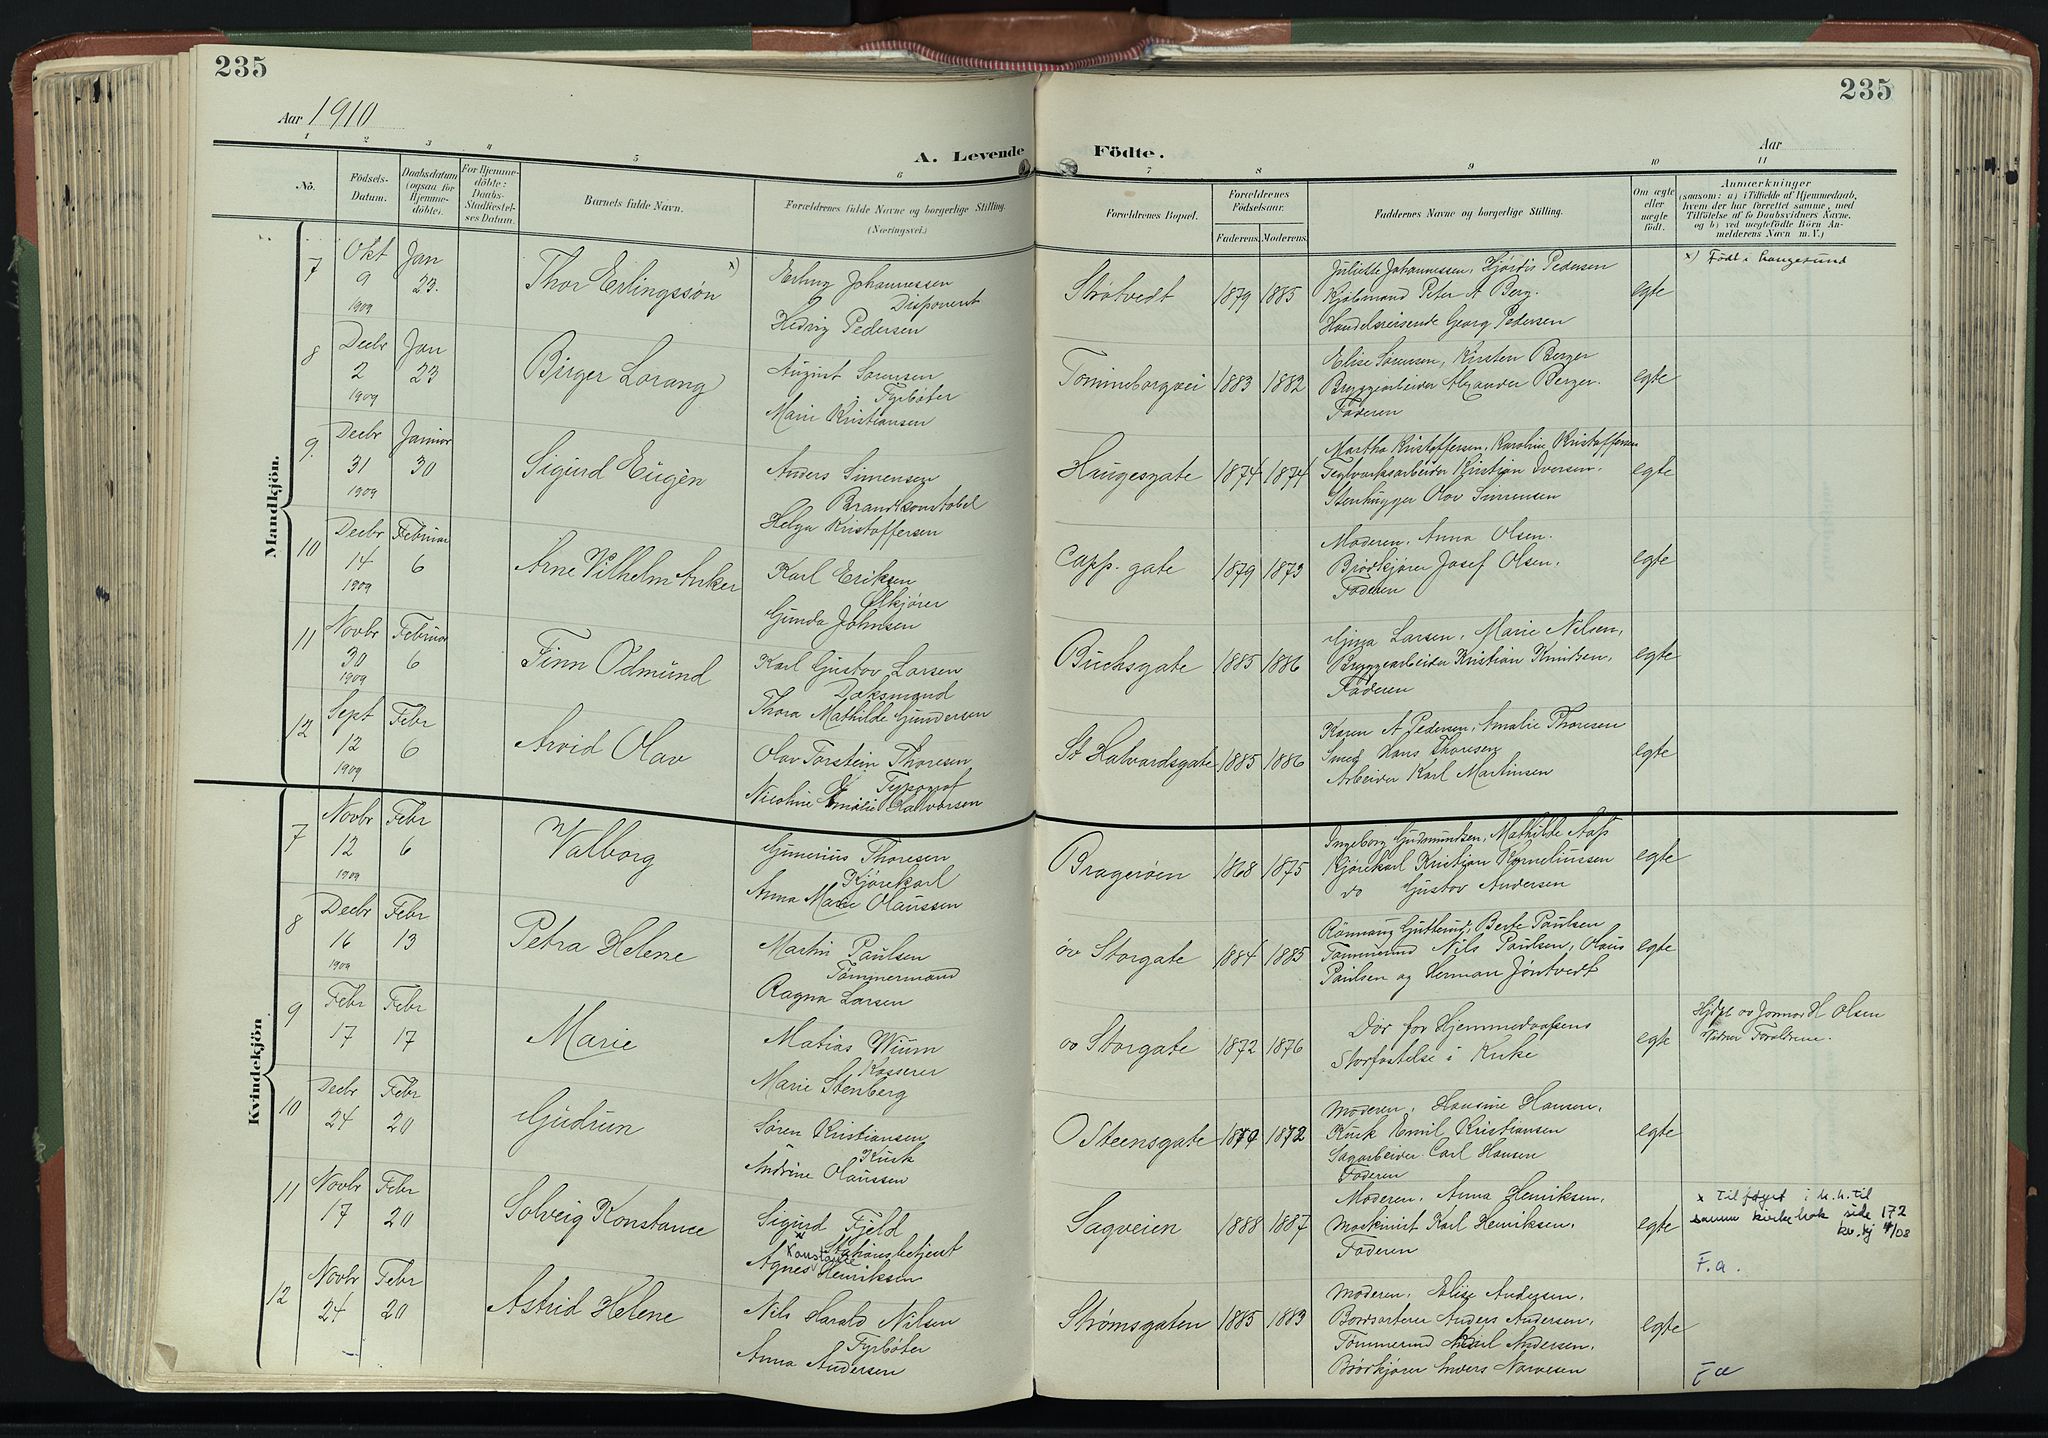 235
235
Aar 1910
Aar
A. Levende Födte.
1 2 3 4 5 6 7 8 9 10 11
Nö.
Födsels-Datum.
Daabsdatum (ogsaa for Hjemme-döbte).
For Hjemme-döbte: Daabs-Stadfæstel-ses Datum.
Barnets fulde Navn.
Forældrenes fulde Navne og borgerlige Stilling.
(Næringsvei.)
Forældrenes Bopæl.
Forældrenes Födselsaar.
Faderens. Moderens.
Faddernes Navne og borgerlige Stilling.
Om ægte eller uægte födt.
Anmærkninger
(saasom: a) i Tilfælde af Hjemmedaab,
hvem der har forrettet samme, med
Tilföielse af to Daabsvidners Navne,
og b) ved uægtefödte Börn An-
melderens Navn m. V.)
Mandkjön.
7 Okt 9 1909 Jan 23. Thor Erlingssön x)
Erling Johannessen
Disponent
Hedvig Pedersen
Strøtvedt 1879 1885
Juliette Johannessen, Hjørdis Pedersen
Kjøbmand Peter A Berg.
Handelsreisende Georg Pedersen
egte
x) Født i Langesund
8 Decbr 2 1909 Jan 23 Birger Lorang
August Sørensen
Fyrbøter
Marie Kristiansen
Tomineborgvei 1883 1882
Elise Sørensen, Kirsten Berger
Bryggearbeider Alexander Berger.
Faderen
egte
9. Decbr 31 1909 Januar 30 Sigurd Eugen
Anders Simensen
Brandkonstabel
Helga Kristoffersen
Haugesgate 1874 1874
Martha Kristoffersen, Karoline Kristoffersen
Teglverksarbeider Kristian Iversen.
Stenhugger Olov Simensen
egte
10 Decbr 14 1909 Februar 6 Arne Vilhelm Anker
Karl Eriksen
Ølkjører
Gunda Johnsen
Capp. gate 1879 1873
Moderen. Anna Olsen.
Brødkjører Josef Olsen.
Faderen
egte
11 Novbr 30 1909 Februar 6 Finn Odmund
Karl Gustav Larsen
Dæksmand
Thora Mathilde Gundersen
Buchsgate 1885 1886
Ginza Larsen, Marie Nilsen,
Bryggearbeider Kristian Knudsen,
Faderen
egte
12 Sept 12 1909 Febr 6 Arvid Olav
Olav Torstein Thoresen
Typograf
Nicoline Emalie Halvorsen
St Halvardsgate 1885 1886
Karen A Pedersen, Amalie Thoresen
Smed Hans Thoresen
Arbeider Karl Martinsen
egte
Kvindekjön
7 Novbr 12 1909 Febr 6 Valborg
Gunerius Thoresen
Kjørekarl
Anna Marie Olaussen
Bragerøen 1868 1875
Ingeborg Gudmundsen, Mathilde Aass
Kjørekarl Kristian Korneliussen
do Gustav Andersen
egte
8 Decbr 16 1909 Febr 13 Petra Helene
Martin Paulsen
Tømmermand
Ragna Larsen
øv Storgate 1884 1885
Rønnaug Gutterud, Berte Paulsen
Tømmermd Nils Paulsen, Olaus
Paulsen og Herman Jøntvedt
egte
9 Febr 17 Febr 17 Marie
Matias Wium
Kasserer
Marie Stenberg
øv Storgate 1872 1876
Dør før Hjemmedaabens
Stadfæstelse i Kirke
egte
Hjdøbt av Jormor H Olsen
Vidner Forældrene.
10 Decbr 24 Febr 20 Gudrun
Søren Kristiansen
Kusk
Andrine Olaussen
O Steensgate 1870 1872
Moderen, Hansine Hansen.
Kusk Emil Kristiansen
Sagarbeider Carl Hansen
Faderen
egte
11 Novbr 17 Febr 20 Solveig Konstance
Sigurd Fjeld
Stationsbetjent
Agnes x Konstance Henriksen
Sagveien 1888 1887
Moderen, Anna Henriksen,
Maskinist Karl Henriksen,
Faderen
egte
x Tilføyet i h.h.til
samme kirkebok side 172
kv.kj 4/08
F.a.
12 Novbr 24 Febr 20 Astrid Helene
Nils Harald Nilsen
Fyrbøter
Anna Andersen
Strømsgaten 1885 1883
Moderen, Elise Andersen,
Bordsorterer Anders Andersen,
Tømmermd Karl Andersen,
Brødkjører Anders Narvesen
egte
F a